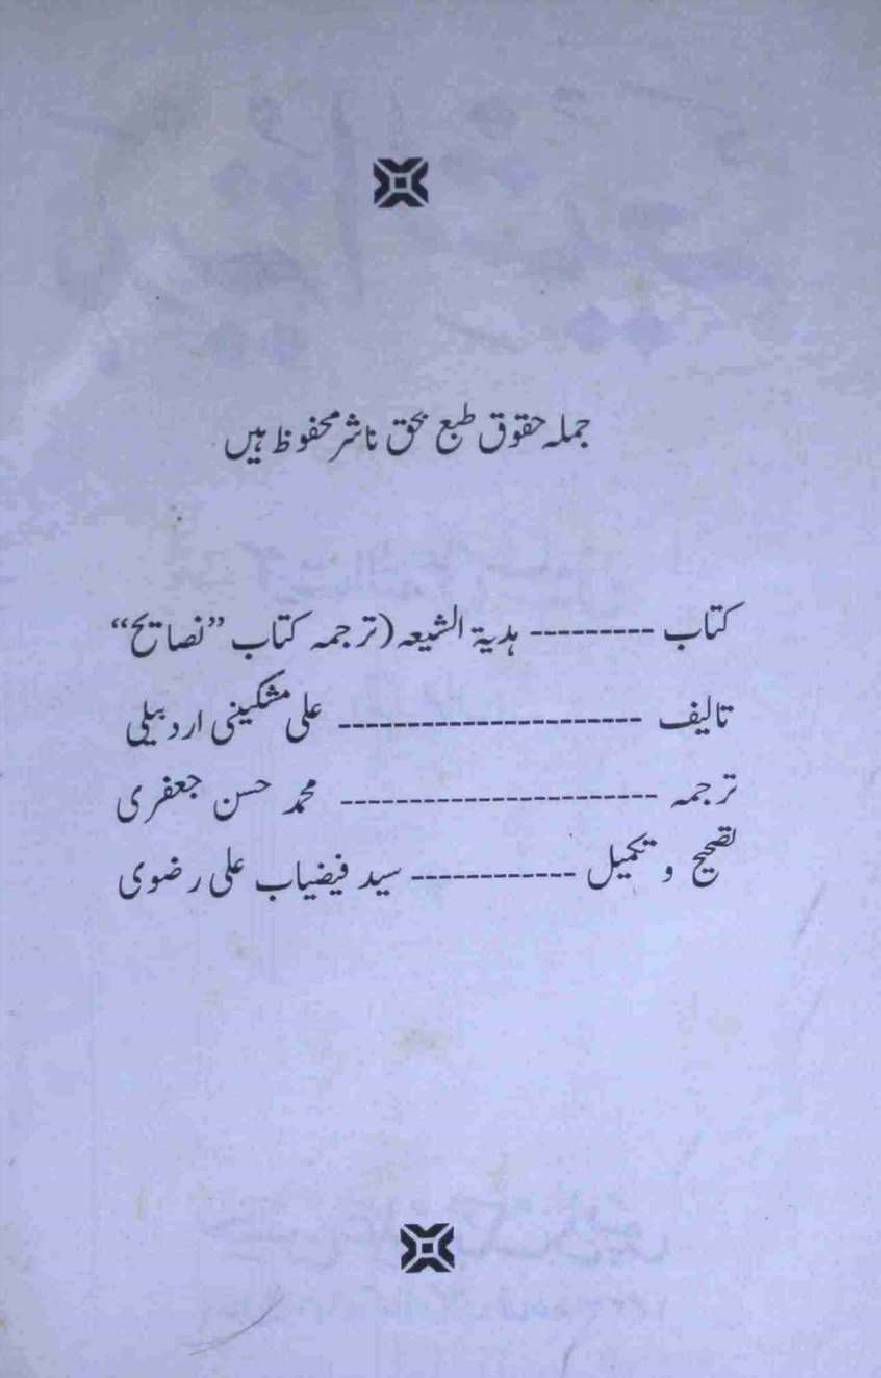 جملہ حقوق طبع بحق ناشر محفوظ ہیں
کتاب --------- ہدیۃ الشیعہ (ترجمہ کتاب ”نصایح“
تالیف ---------------------- علی مشکینی اردبیلی
ترجمہ ----------------------- محمد حسن جعفری
تصحیح و تکمیل ------------ سید فیضیاب علی رضوی